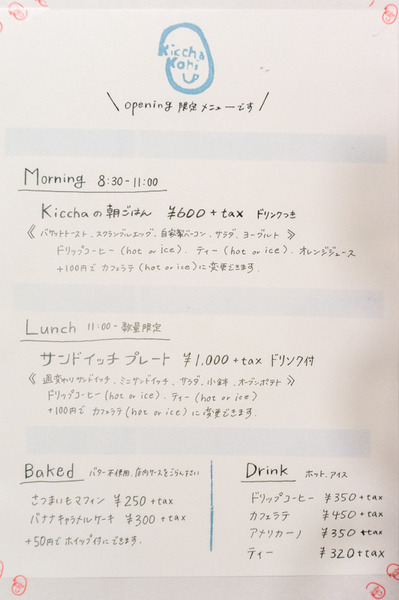 Kiccha
Kohi
\ opening 限定メニューです /
Morning 8:30-11:00
Kicchaの朝ごはん ¥600+tax ドリンクつき
《 バゲットトースト、スクランブルエッグ、自家製ベーコン、サラダ、ヨーグルト 》
ドリップコーヒー (hot or ice)、ティー (hot or ice)、オレンジジュース
+100円で カフェラテ (hot or ice)に変更できます.
Lunch 11:00- 数量限定
サンドイッチプレート ¥1,000+tax ドリンク付
《 週変わりサンドイッチ、ミニサンドイッチ、サラダ、小鉢、オーブンポテト 》
ドリップコーヒー (hot or ice)、ティー (hot or ice)
+100円で カフェラテ (hot or ice)に変更できます.
Baked バター不使用、店内ケースをごらん下さい
さつまいもマフィン ¥250+tax
バナナキャラメルケーキ ¥300+tax
+50円で ホイップ付にできます.
Drink ホット、アイス
ドリップコーヒー ¥350+tax
カフェラテ ¥450+tax
アメリカーノ ¥350+tax
ティー ¥320+tax